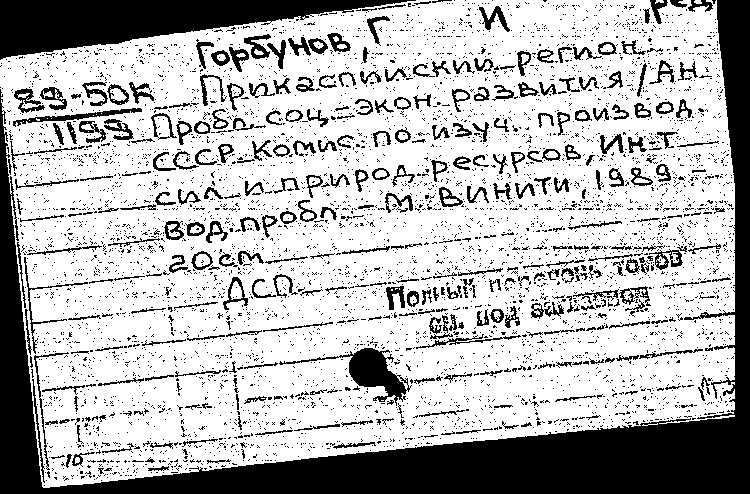 Горбунов, Г И , ред.
89-50к Прикаспийский регион:
1199 Пробл. соц.-экон. развития / Ан
СССР. Комис. по изуч. производ.
сил и природ. ресурсов, Ин-т
вод. пробл. - М: ВИНИТИ, 1989. -
20см
ДСП.
Полный перечень томов
см. под заглавием
10